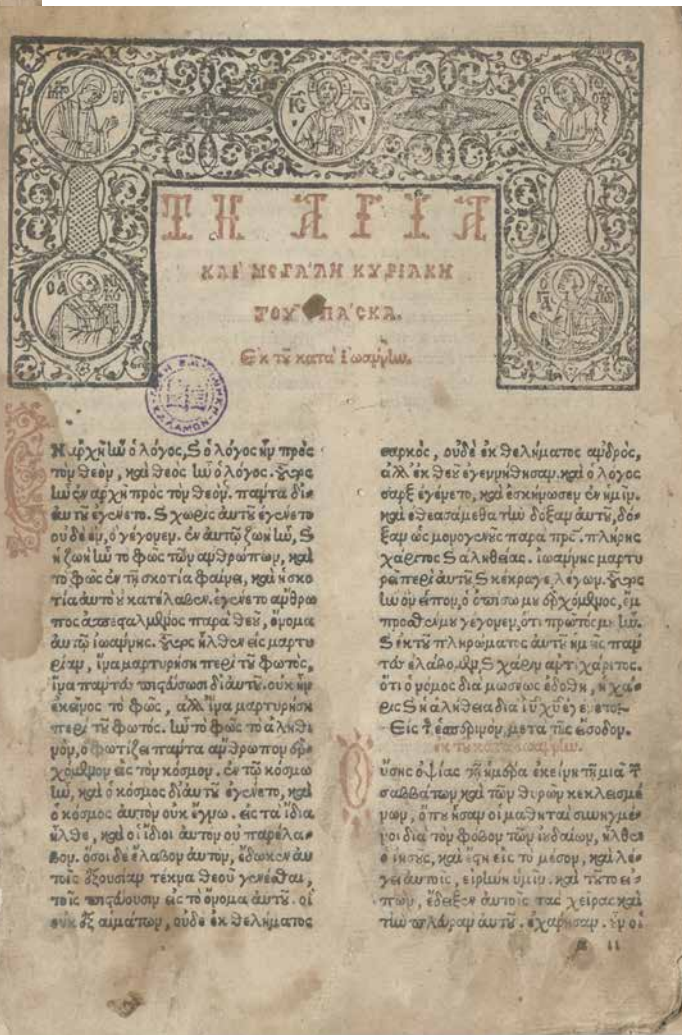 ΜΡ ΘΥ
ΙϹ ΧϹ
ΤΗ ΑΓΙΑ
ΚΑΙ ΜΕΓΑΛΗ ΚΥΡΙΑΚΗ
ΤΟΥ ΠΑϹΚΑ.
Εκ τȣ κατα Ιωαννην.
Εν αρχῆ ἦν ὁ λόγος, ϗ ὁ λόγος ἦν πρὸς
τὸν θεὸν, καὶ θεὸς ἦν ὁ λόγος. οὗτος
ἦν ἐν ἀρχῆ πρὸς τὸν θεόν. πάντα δι
αυτȣ ἐγένετο. ϗ χωρὶς αὐτȣ ἐγένετο
ουδὲ ἓν, ὁ γέγονεν. ἐν αυτῷ ζωὴ ἦν, ϗ
ἡ ζωὴ ἦν τὸ φῶς τῶν ανθρώπων, καὶ
τὸ φῶς ἐν τῆ σκοτία φαίνει, καὶ ἡ σκο
τία αυτὸ ȣ κατέλαβεν. ἐγένετο ανθρω
πος ἀπεσταλμένος παρὰ θεȣ, ὄνομα
αυτῷ ἰωαννης. οὗτος ἦλθεν εἰς μαρτυ
ρίαν, ἵνα μαρτυρήση περὶ τȣ φωτὸς,
ἵνα πάντες πιστεύσωσι δι αυτȣ. ουκ ἦν
ἐκεῖνος τὸ φῶς, ἀλλ ἵνα μαρτυρήση
περὶ τȣ φωτός. ἦν τὸ φῶς τὸ ἀληθι
νὸν, ὁ φωτίζει πάντα ανθρωπον ἐρ
χόμενον εἰς τὸν κόσμον. ἐν τῷ κόσμω
ἦν, καὶ ὁ κόσμος δι αυτȣ ἐγένετο, καὶ
ὁ κόσμος αυτὸν ουκ ἔγνω. εἰς τὰ ἴδια
ἦλθε, καὶ οἱ ἴδιοι αυτὸν ου παρέλα
βον. ὅσοι δὲ ἔλαβον αυτὸν, ἔδωκεν αυ
τοῖς ἐξουσίαν τέκνα θεοῦ γενέσθαι,
τοῖς πιστεύουσιν εἰς τὸ ὄνομα αυτȣ. οἱ
ουκ ἐξ αιμάτων, ουδὲ ἐκ θελήματος
σαρκὸς, ουδὲ ἐκ θελήματος ανδρὸς,
ἀλλ ἐκ θεȣ ἐγεννήθησαν. καὶ ὁ λόγος
σαρξ ἐγένετο, καὶ ἐσκήνωσεν ἐν ἡμῖν.
καὶ ἐθεασάμεθα τὴν δόξαν αυτȣ, δό
ξαν ὡς μονογενȣς παρὰ πρς. πλήρης
χάριτος ϗ ἀληθείας. ἰωάννης μαρτυ
ρεῖ περὶ αυτȣ ϗ κέκραγε, λέγων. οὗτος
ἦν ὃν εἶπον, ὁ ὀπίσω μȣ ἐρχόμενος, ἔμ
προσθέν μȣ γέγονεν, ὅτι πρῶτός μȣ ἦν.
ϗ ἐκ τȣ πληρώματος αυτȣ ἡμεῖς παν
τες ἐλάβομεν, ϗ χάριν αντὶ χάριτος.
ὅτι ὁ νόμος διὰ μωσέως ἐδόθη, ἡ χά
ρις ϗ ἡ ἀλήθεια διὰ ιυ χυ ἐγένετο.
Εἰς τ ἑσπερινὸν, μετὰ τῆς εἰσόδου.
ἐκ τȣ κατὰ ἰωαννην.
Οὔσης ὀψίας τῆ ἡμέρα ἐκείνη τῆ μιᾶ τ
σαββάτων καὶ τῶν θυρῶν κεκλεισμέ
νων, ὅπȣ ἦσαν οἱ μαθηταὶ συνηγμέ
νοι διὰ τὸν φόβον τῶν ἰȣδαίων, ἦλθεν
ὁ ἰησȣς, καὶ ἔστη εἰς τὸ μέσον, καὶ λέ
γει αυτοῖς, εἰρήνη υμῖν. καὶ τȣτο εἰ
πὼν, ἔδειξεν αυτοῖς τὰς χεῖρας καὶ
τὴν πλευρὰν αυτȣ. ἐχάρησαν. ȣν οἱ